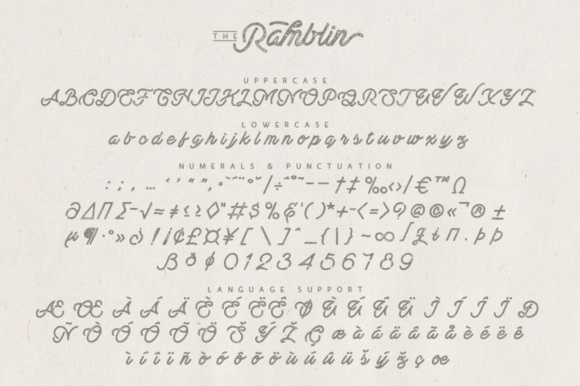 THE Ramblin
UPPERCASE
ABCDEFGHIJKLMNOPQRSTUVWXYZ
LOWERCASE
abcdefghijklmnopqrstuvwxyz
NUMERALS & PUNCTUATION
: ; , … ‘ ’ “ ” / ÷ – — † ‡ ‰ ‹ › / € ™ Ω
∂ ∆ Π Σ − √ = ≠ ≤ ≥ ◊ " # $ % & ' ( ) * + - < = > ? @ © « ¯ ® ±
µ ¶ · ° » ! ¡ ¢ £ ¤ ¥ [ \ ] ^ _ { | } ~ ∞ ∫
ß ð 0 1 2 3 4 5 6 7 8 9
LANGUAGE SUPPORT
Æ Œ À Á Ä È É Ë Ê Ù Ú Û Ü Ì Í Î Ï Ð
Ñ Ò Ó Ö Š Ý Ž Ç æ à á ä â ã å è é ë ê
ì í î ï ñ ò ó ô õ ö ù ú û ü š ý ž ç œ